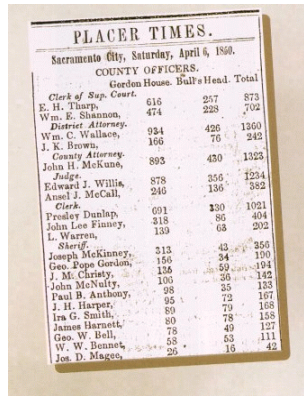 PLACER TIMES.
Sacramento City, Saturday, April 6, 1850.
COUNTY OFFICERS.
Gordon House. Bull's Head. Total
Clerk of Sup. Court.
E. H. Tharp, 616 257 873
Wm. E. Shannon, 474 228 702
District Attorney.
Wm. C. Wallace, 934 426 1360
J. K. Brown, 166 76 242
County Attorney.
John H. McKune, 893 430 1323
Judge.
Edward J. Willis, 878 356 1234
Ansel J. McCall, 246 136 382
Clerk.
Presley Dunlap, 691 330 1021
John Lee Finney, 318 86 404
L. Warren, 139 63 202
Sheriff.
Joseph McKinney, 313 43 356
Geo. Pope Gordon, 156 34 190
J. M. Christy, 135 59 194
John McNulty, 106 36 142
Paul B. Anthony, 98 35 133
J. H. Harper, 95 72 167
Ira G. Smith, 89 79 168
James Harnett, 80 78 158
Geo. W. Bell, 78 49 127
W. W. Bennet, 58 53 111
Jos. D. Magee, 26 16 42